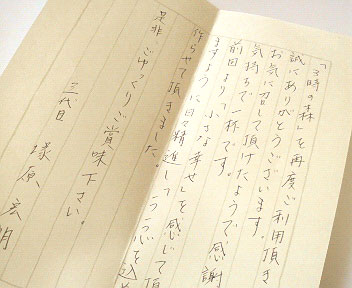 「3時の森」を再度ご利用頂き
誠にありがとうございます。
お気に召して頂けたようで感謝
気持ちで一杯です。
前回より「小さな幸せ」を感じて頂
ますように日々精進して心を込め
作らせて頂きました。
是非、ごゆっくりご賞味下さい。
三代目
塚原宏明